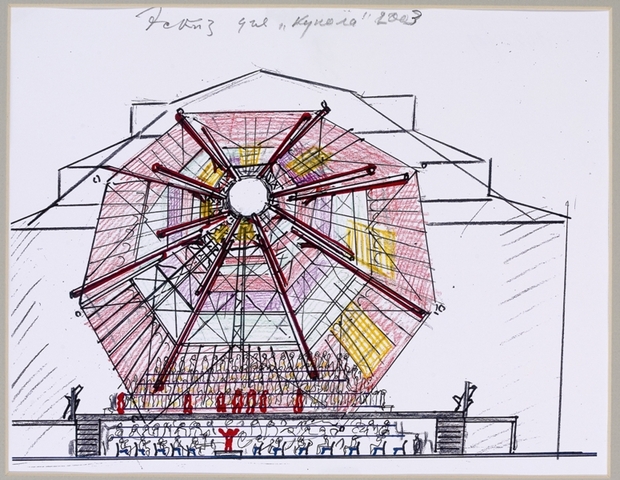 Эскиз для „Купола“ 2003